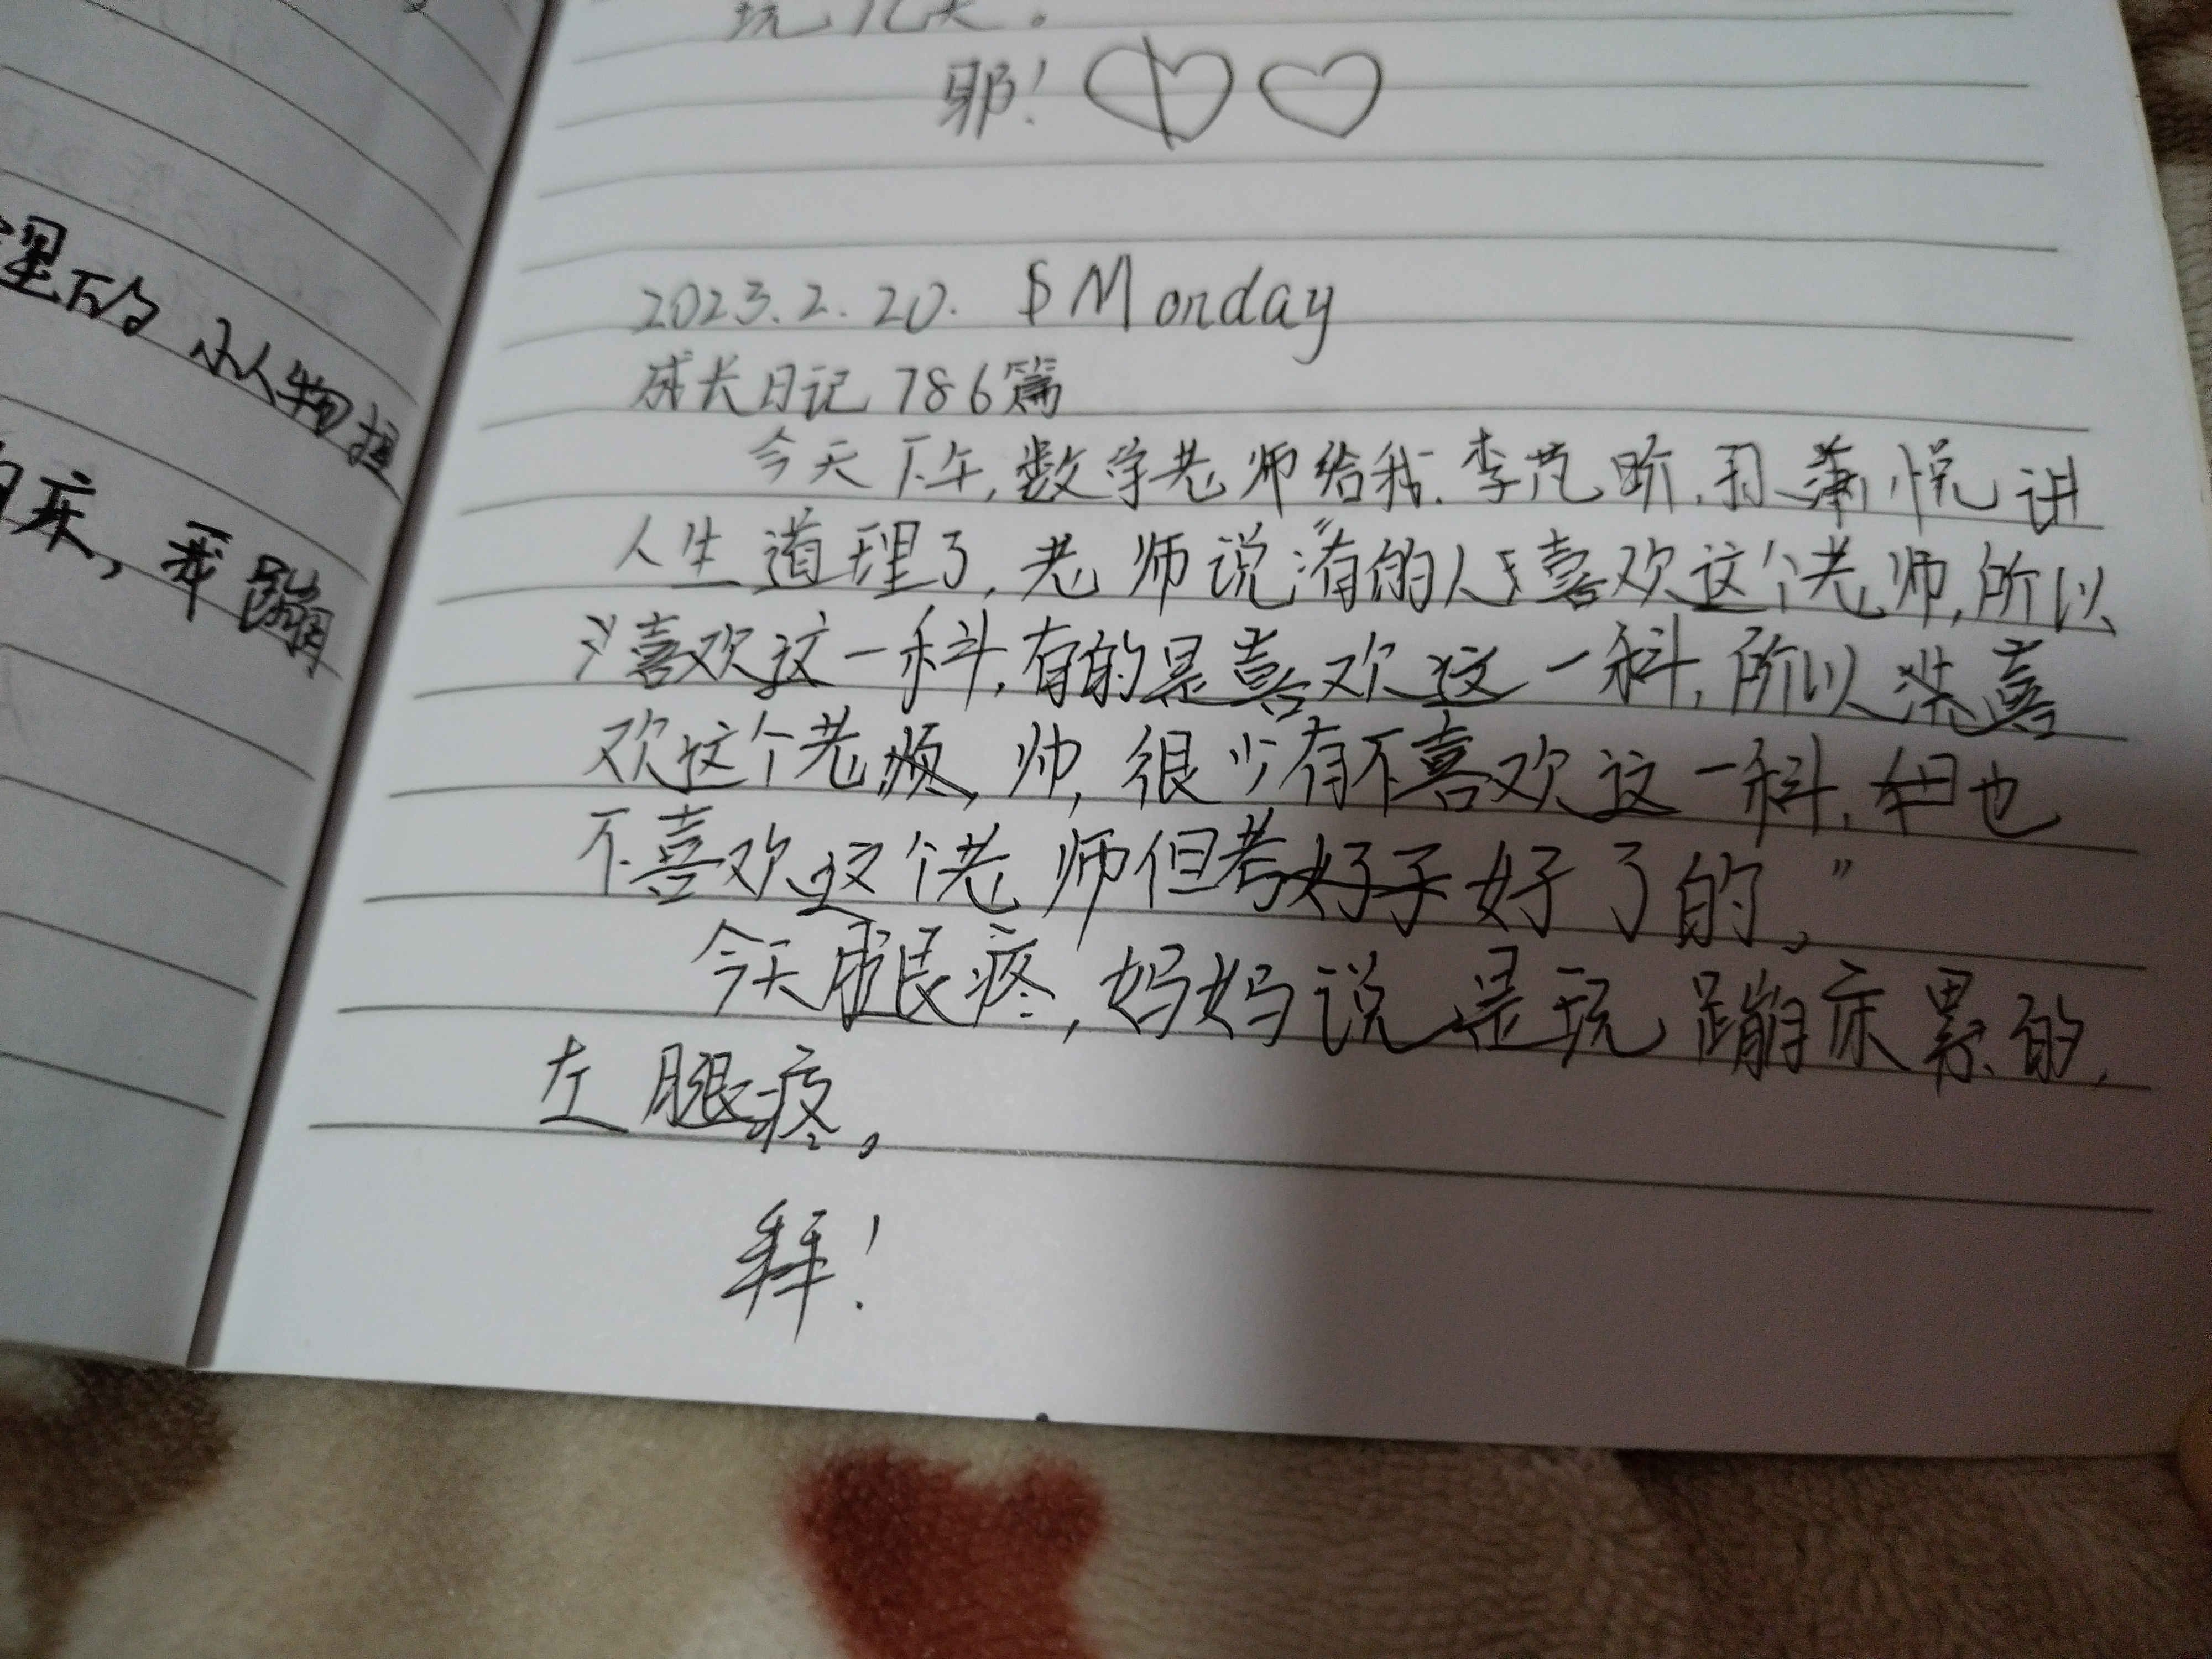 玩几天。
耶!
2023.2.20. Monday
成长日记786篇
今天下午,数学老师给我.李芃昕.羽蒲悦讲
人生道理了,老师说:“有的人喜欢这个老师,所以
喜欢这一科,有的是喜欢这一科,所以喜
欢这个老师,很少有不喜欢这一科,也
不喜欢这个老师但考好了的。”
今天腿疼,妈妈说是玩蹦床累的,
左腿疼,
拜!
里的小人物
床,我蹦